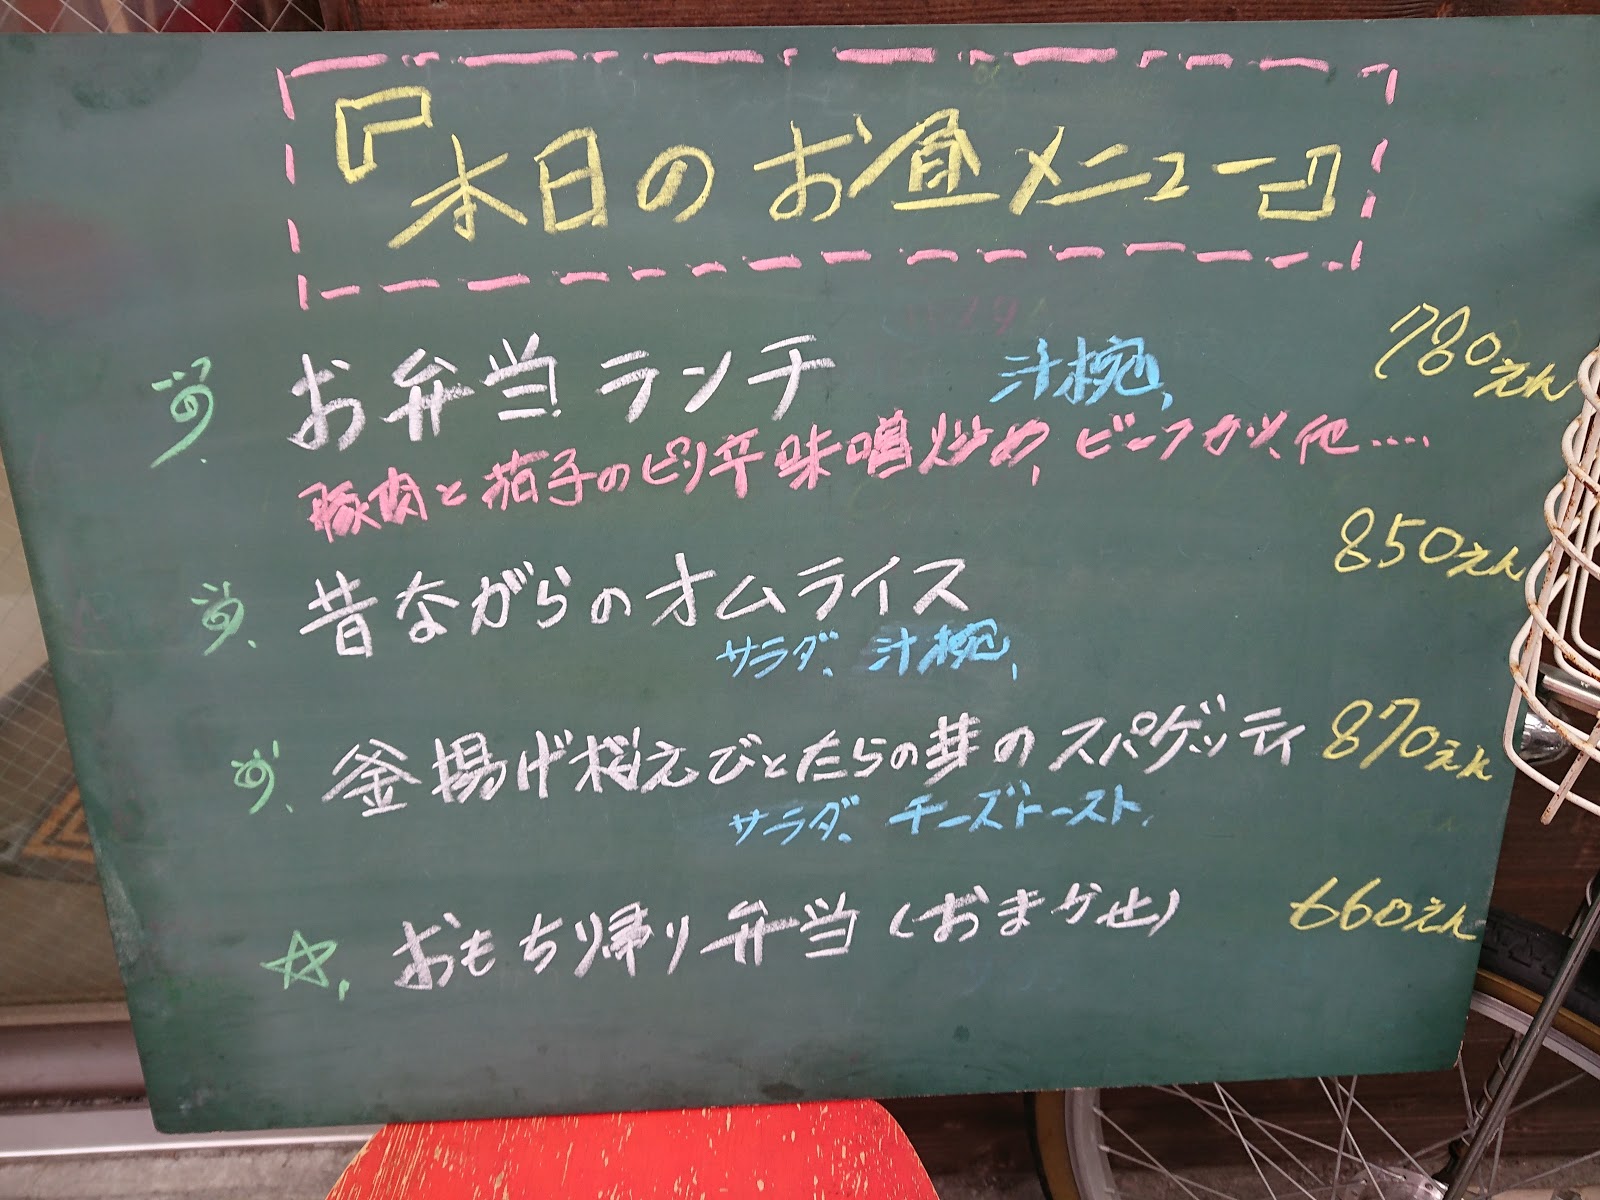 『本日のお昼メニュー』
お弁当ランチ 汁椀、 780えん
豚肉と茄子のピリ辛味噌炒め、ビーフカツ、他‥‥
昔ながらのオムライス 850えん
サラダ、汁椀、
釜揚げ桜えびとたらの芽のスパゲッティ 870えん
サラダ、チーズトースト、
☆、おもち帰り弁当(おまかせ) 660えん